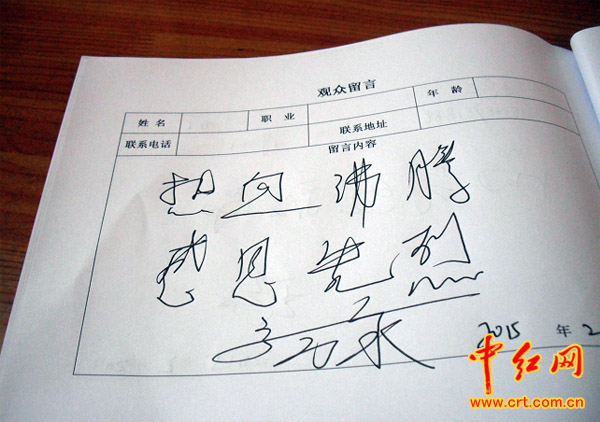 观众留言
姓名 职业 年龄
联系电话 联系地址
留言内容
热血沸腾
感恩先烈
2015 年 2
中红网
www.crt.com.cn